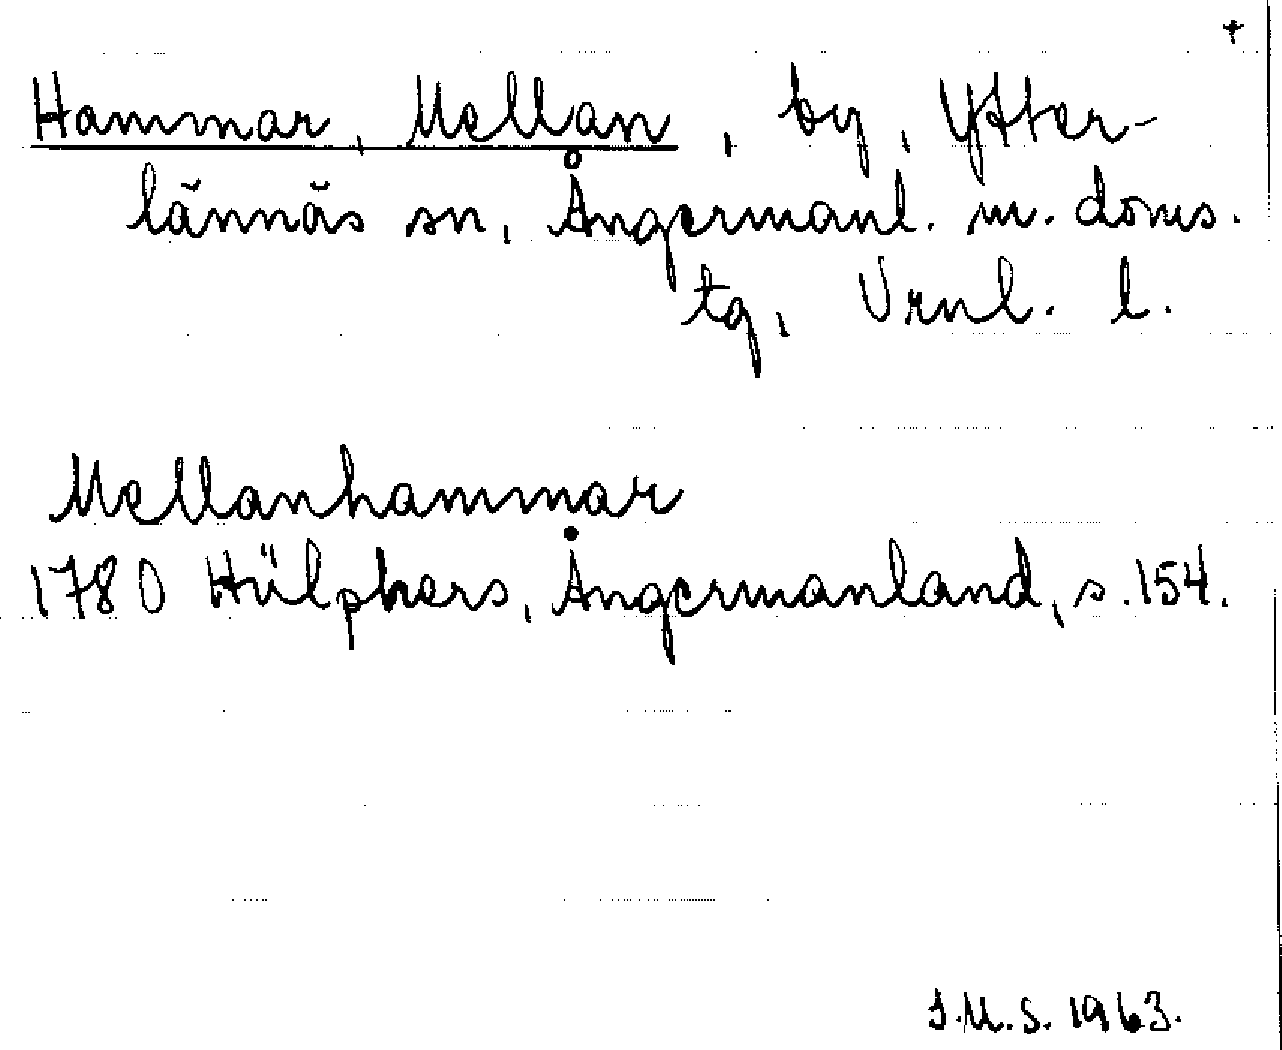 +
Hammar, Mellan, by, Ytter-
lännäs sn, Ångermanl. m. doms.
tg, Vrnl. l.
Mellanhammar
1780 Hülphers, Ångermanland, s. 154.
I.M.S. 1963.